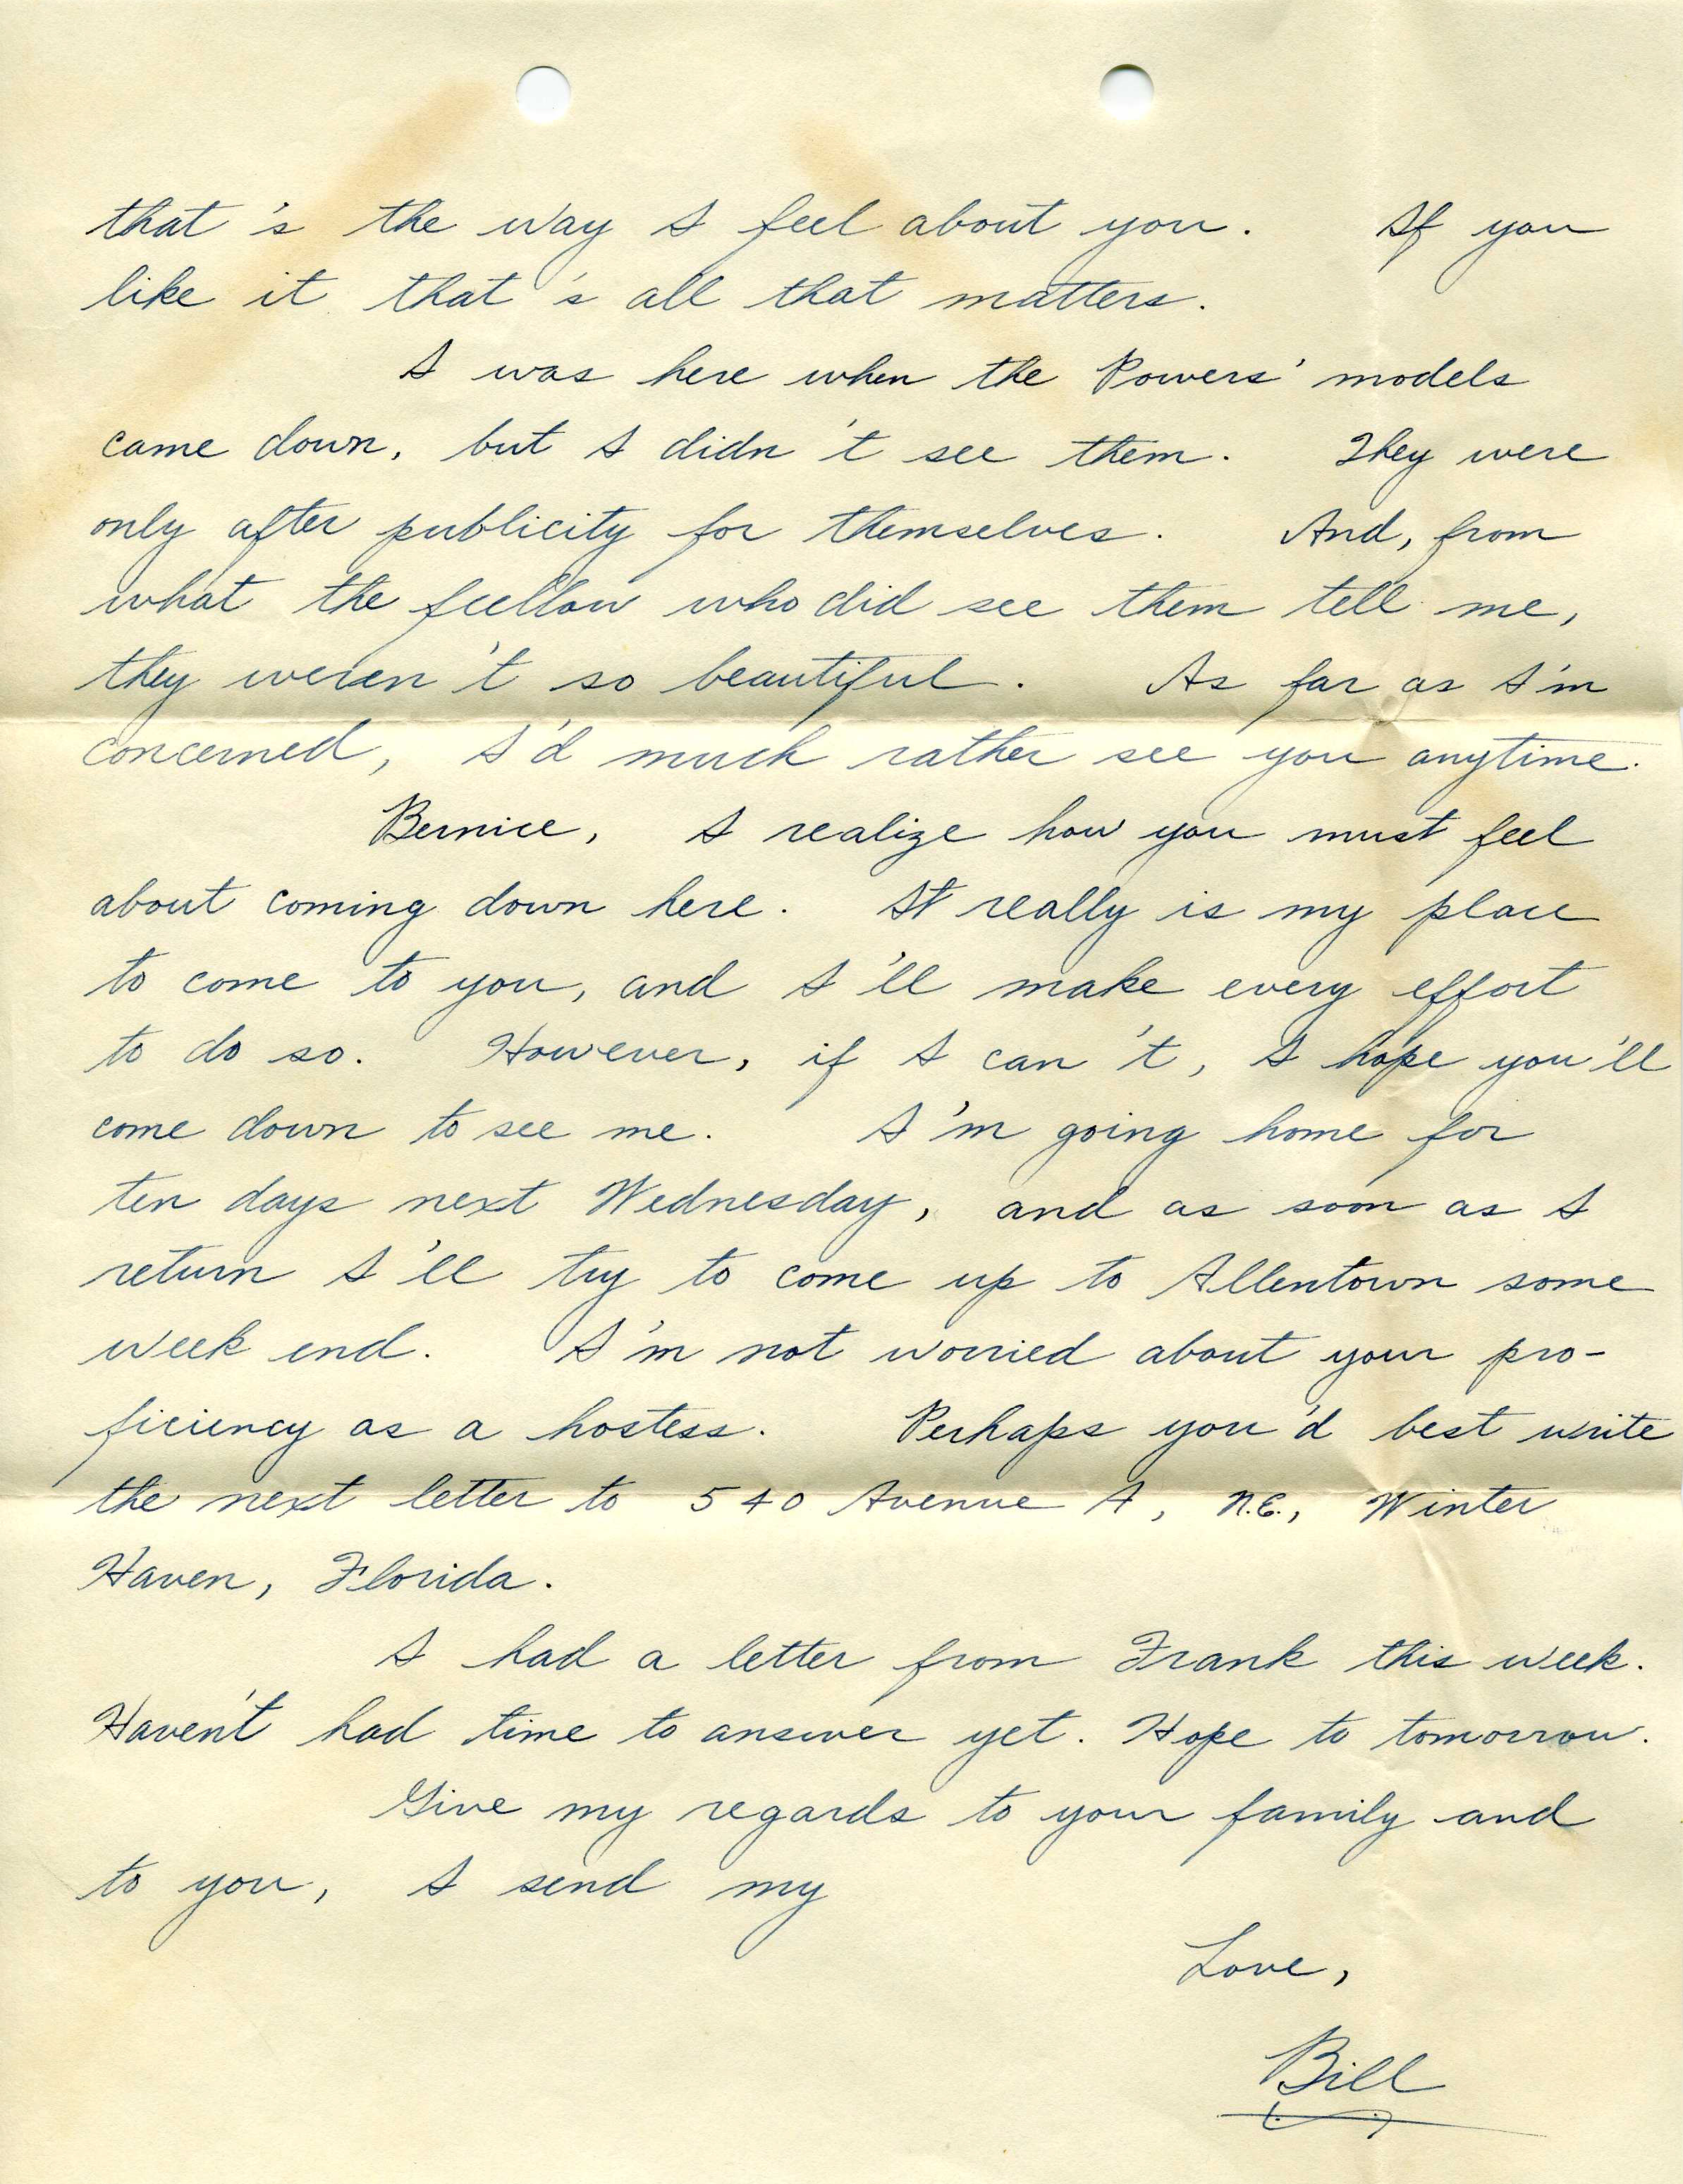 that's the way I feel about you. If you
like it that's all that matters.
I was here when the Powers' models
came down, but I didn't see them. They were
only after publicity for themselves. And, from
what the fellow who did see them tell me,
they weren't so beautiful. As far as I'm
concerned, I'd much rather see you anytime.
Bernice, I realize how you must feel
about coming down here. It really is my place
to come to you, and I'll make every effort
to do so. However, if I can't, I hope you'll
come down to see me. I'm going home for
ten days next Wednesday, and as soon as I
return I'll try to come up to Allentown some
week end. I'm not worried about your pro-
ficiency as a hostess. Perhaps you'd best write
the next letter to 540 Avenue A, N.E., Winter
Haven, Florida.
I had a letter from Frank this week.
Haven't had time to answer yet. Hope to tomorrow.
Give my regards to your family and
to you, I send my
Love,
Bill